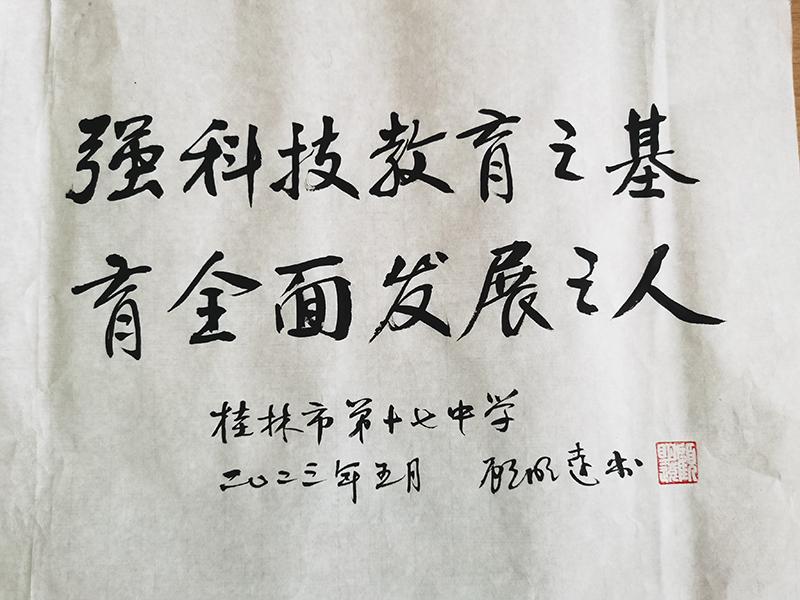 强科技教育之基
育全面发展之人
桂林市第十七中学
二〇二三年五月 顾明远书